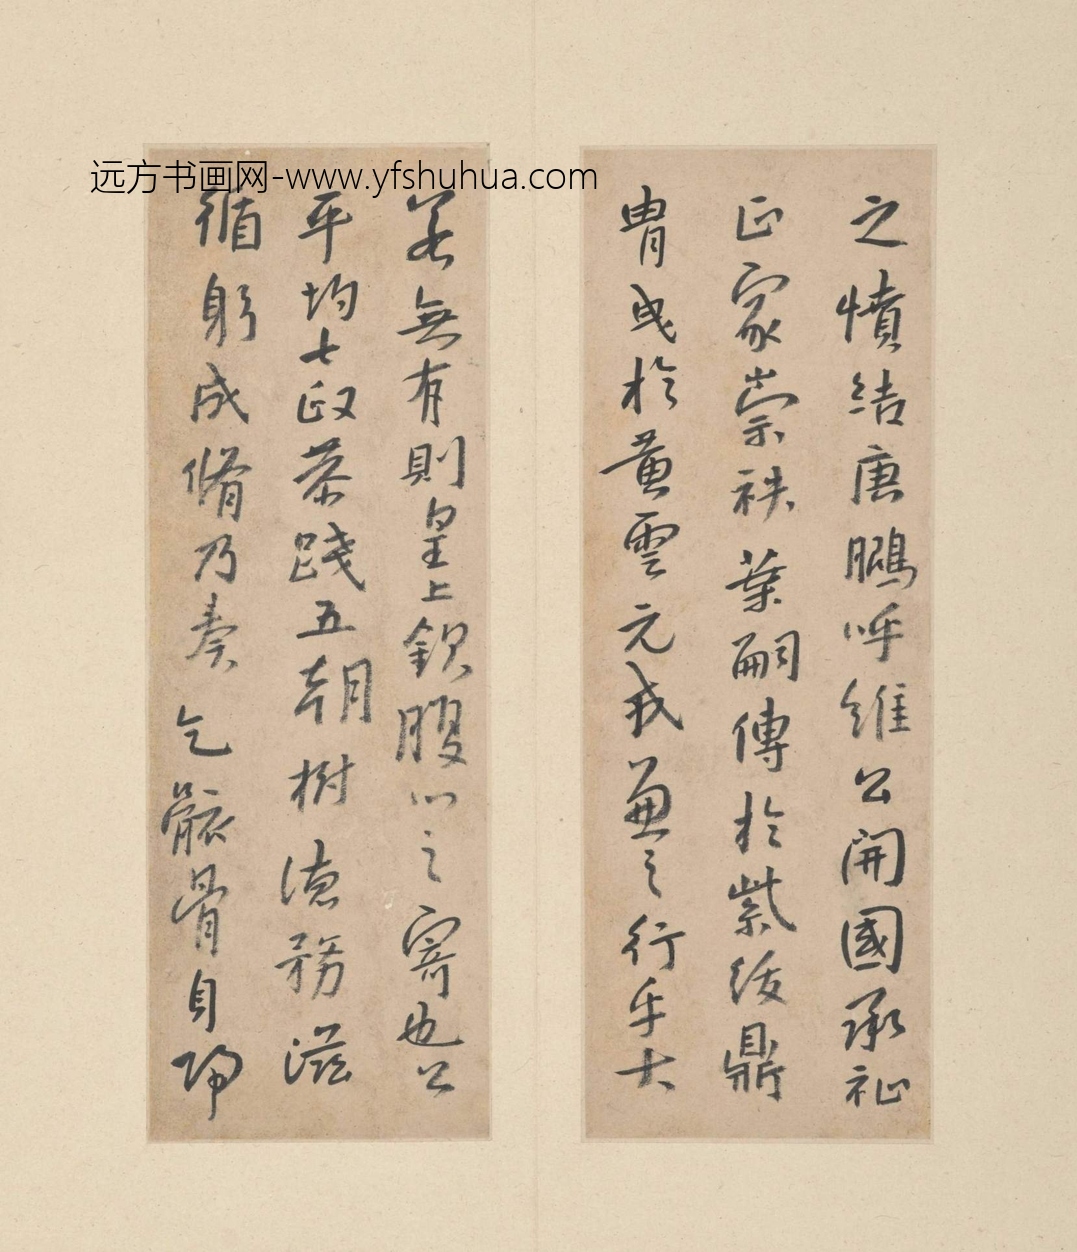 远方书画网-www.yfshuhua.com
之憤結唐鵬呼維公開國承祉
正家崇秩葉嗣傳於紫紱鼎
胄成於黄雲元戎兼之行乎大
若無有則皇上欽腹心之寄也公
平均七政恭踐五朝樹德務滋
循躬成脩乃奏乞骸骨自歸